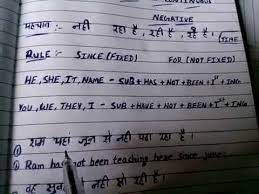 CONTINUOUS
NEGATIVE
पहचान :- नहीं रहा है, रही है, रहे है। (TIME
RULE :- SINCE (FIXED) FOR (NOT FIXED)
HE, SHE, IT, NAME - SUB + HAS + NOT + BEEN + Iˢᵗ + ING
YOU, WE, THEY, I - SUB + HAVE + NOT + BEEN + Iˢᵗ + ING
① राम यहां जून से नहीं पढ़ा रहा है।
② Ram has not been teaching here since june.
वह नहीं रही है।